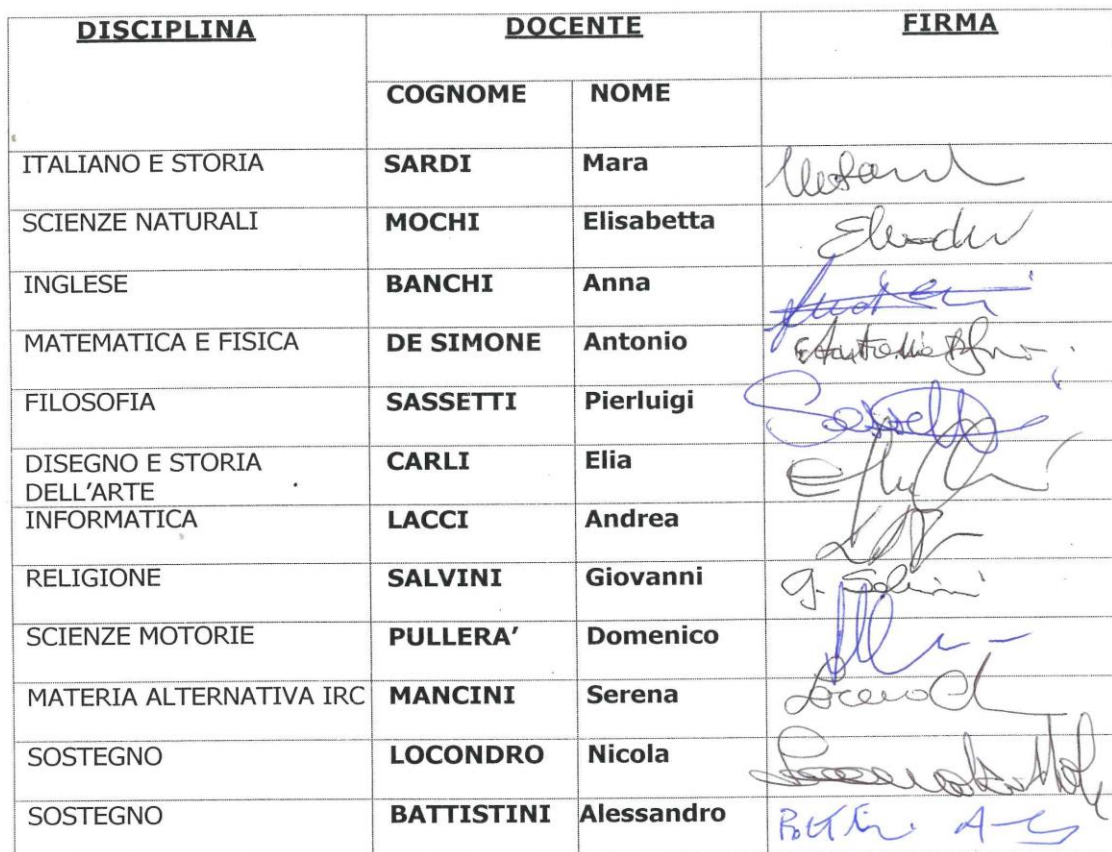 DISCIPLINA DOCENTE FIRMA
COGNOME NOME
ITALIANO E STORIA SARDI Mara
SCIENZE NATURALI MOCHI Elisabetta
INGLESE BANCHI Anna
MATEMATICA E FISICA DE SIMONE Antonio
FILOSOFIA SASSETTI Pierluigi
DISEGNO E STORIA CARLI Elia
DELL'ARTE
INFORMATICA LACCI Andrea
RELIGIONE SALVINI Giovanni G. Salvini
SCIENZE MOTORIE PULLERA' Domenico
MATERIA ALTERNATIVA IRC MANCINI Serena
SOSTEGNO LOCONDRO Nicola
SOSTEGNO BATTISTINI Alessandro